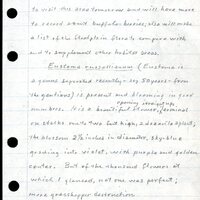 to visit this area tomorrow and will have more
to record about buffalo-berries; also will make
a list of the floodplain flora to compare with
and to supplement other habitat areas.
Eustoma russellianum (Eustoma is
a genus separated recently - say 50 years - from
the gentians) is present and blooming in good
numbers. It is a beautiful flower, terminal
opening straight up,
on stalks most two feet high, 2 decades aplenty;
the blossom 2½ inches in diameter, sky-blue
grading into violet, with purple and golden
center. But of the thousand flowers at
which I glanced, not one was perfect;
more grasshopper destruction